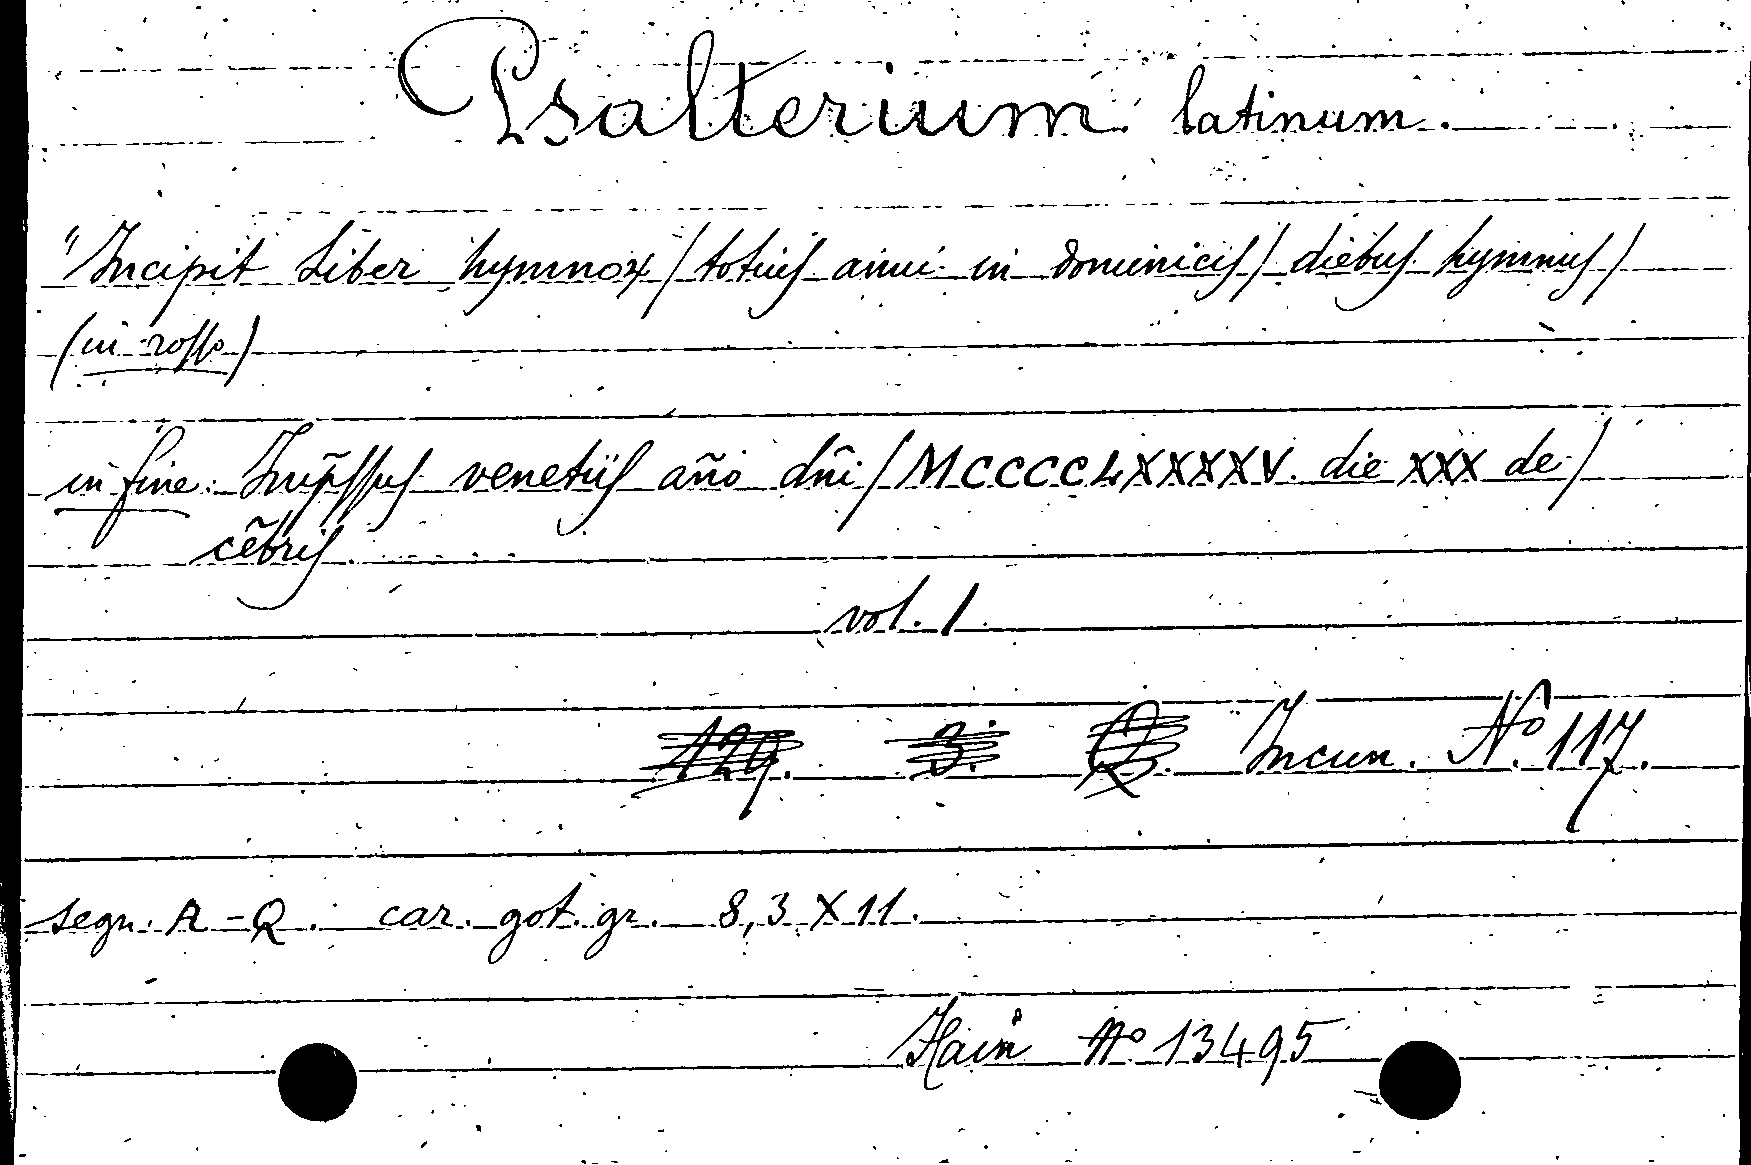 Psalterium latinum.
"Incipit Liber hymnoꝝ / totius anni in dominicis / diebus hymnus /
(in rosso)
in fine: Imp̃ssus venetiis año dñi / MCCCCLXXXXV. die XXX de /
cẽbris
vol. 1.
129. 3. Q. Incun. Nº. 117.
segn. A - Q. car. got. gr. 8,3 X 11.
Hain Nº 13495